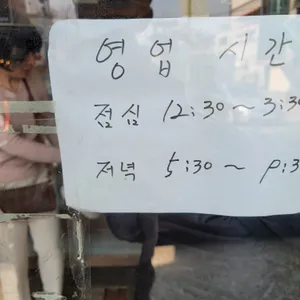 영업 시간
점심 12:30~3:30
저녁 5:30~